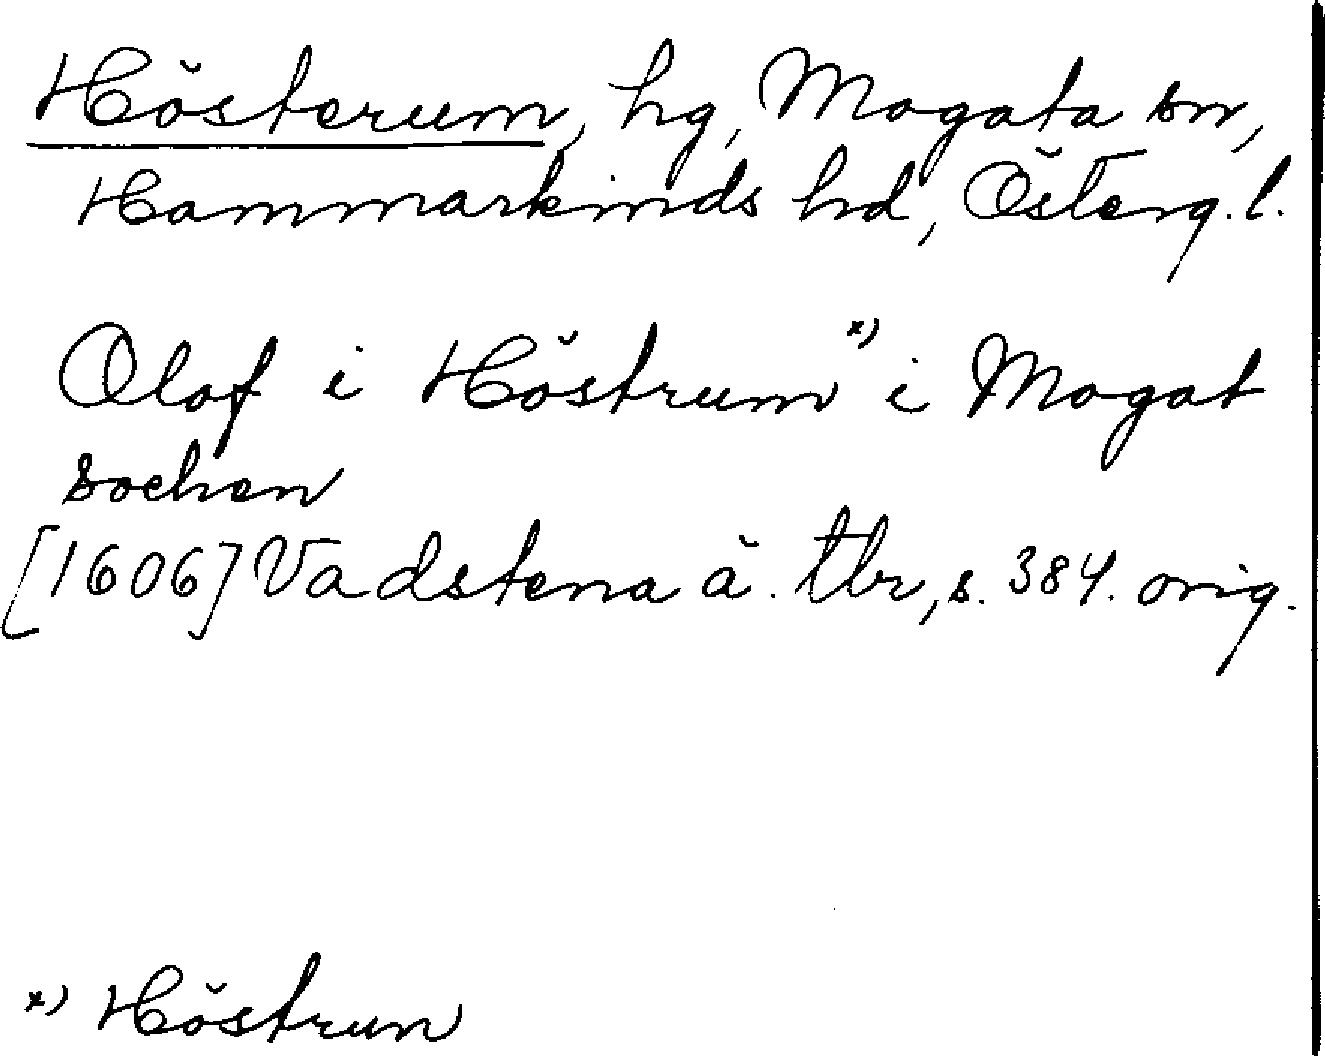 Hösterum, hg, Mogata sn,
Hammarkinds hd, Österg. l.
Olof i Höstrum x) i Mogat
sochen
[1606] Vadstena ä. tbr, s. 384. orig.
x) Höstrun